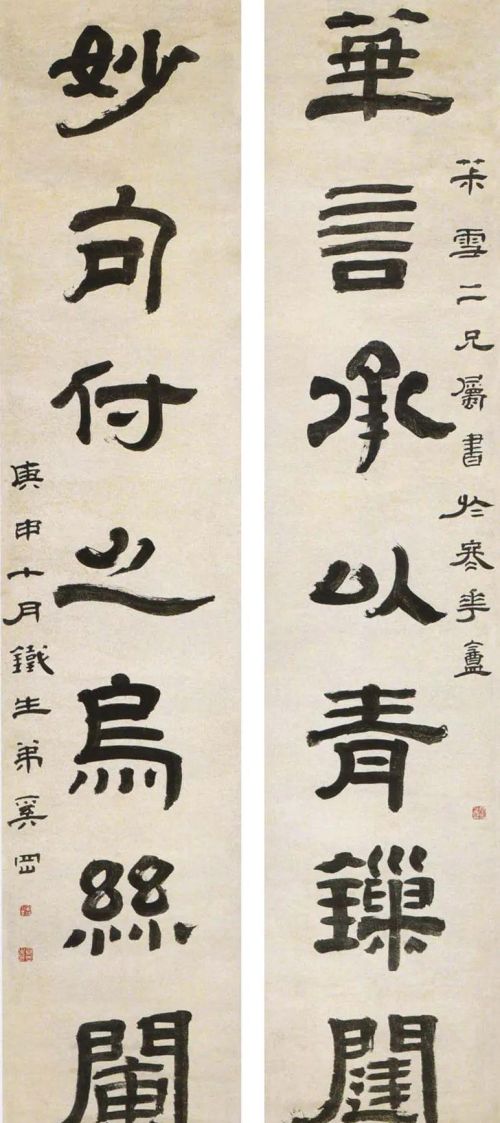 茮雪二兄屬書於冬華盦
華言承以青鏁闥
妙句付之烏絲闌
庚申十月鐵生弟奚岡